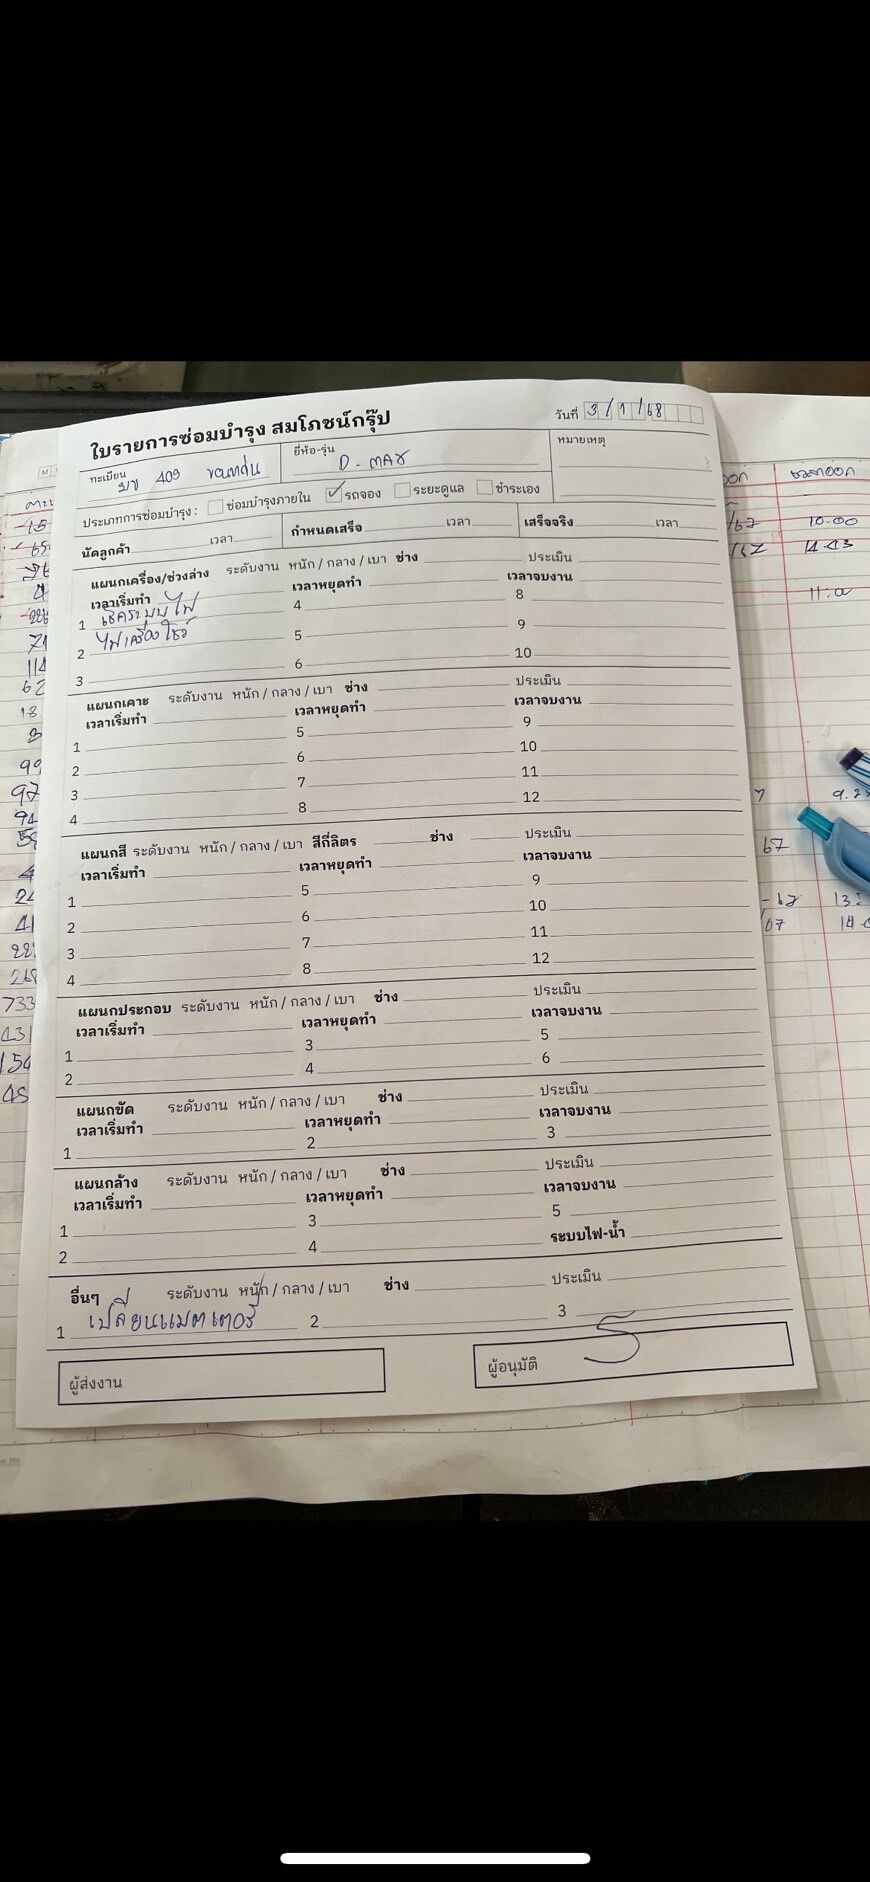 ใบรายการซ่อมบำรุง สมโภชน์กรุ๊ป
วันที่ 3/1/68
ทะเบียน 409 ขอนแก่น
ยี่ห้อ-รุ่น D-MAX
หมายเหตุ
ประเภทการซ่อมบำรุง : ซ่อมบำรุงภายใน รถจอง ระยะดูแล ชำระเอง
นัดลูกค้า เวลา กำหนดเสร็จ เวลา เสร็จจริง เวลา
แผนกเครื่อง/ช่วงล่าง ระดับงาน หนัก / กลาง / เบา ช่าง ประเมิน
เวลาเริ่มทำ เวลาหยุดทำ เวลาจบงาน
1 เช็คระบบไฟ 4 8
2 ไฟเครื่องโชว์ 5 9
3 6 10
แผนกเคาะ ระดับงาน หนัก / กลาง / เบา ช่าง ประเมิน
เวลาเริ่มทำ เวลาหยุดทำ เวลาจบงาน
1 5 9
2 6 10
3 7 11
4 8 12
แผนกสี ระดับงาน หนัก / กลาง / เบา สีกี่ลิตร ช่าง ประเมิน
เวลาเริ่มทำ เวลาหยุดทำ เวลาจบงาน
1 5 9
2 6 10
3 7 11
4 8 12
แผนกประกอบ ระดับงาน หนัก / กลาง / เบา ช่าง ประเมิน
เวลาเริ่มทำ เวลาหยุดทำ เวลาจบงาน
1 3 5
2 4 6
แผนกขัด ระดับงาน หนัก / กลาง / เบา ช่าง ประเมิน
เวลาเริ่มทำ เวลาหยุดทำ เวลาจบงาน
1 2 3
แผนกล้าง ระดับงาน หนัก / กลาง / เบา ช่าง ประเมิน
เวลาเริ่มทำ เวลาหยุดทำ เวลาจบงาน
1 3 5
2 4 ระบบไฟ-น้ำ
อื่นๆ ระดับงาน หนัก / กลาง / เบา ช่าง ประเมิน
1 เปลี่ยนแบตเตอรี่ 2 3
ผู้ส่งงาน ผู้อนุมัติ
เวลาออก
10.00
14.43